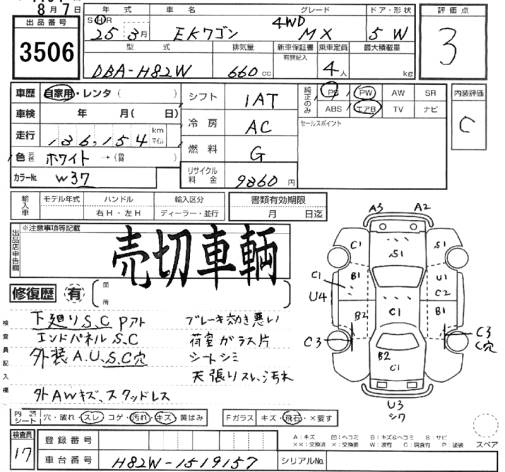 8月7日
出品番号
3506
年式 車名 グレード ドア・形状 評価点
S・H・R 25年3月 EKワゴン 4WD MX 5 W
3
型式 排気量 新車保証書 乗車定員 最大積載量
有償記入
DBA-H82W 660cc 4人 kg
車歴 自家用・レンタ( )
シフト 1AT
純正のみ PS PW AW SR
ABS エアB TV ナビ
内装評価
C
車検 年 月( 日)
冷房 AC
セールスポイント
走行 136,154 km
燃料 G
色 ホワイト →(
カラーNo. W37
リサイクル料金 9860円
輸入車 モデル年式 ハンドル 輸入区分 書類有効期限
右H・左H ディーラー・並行 月 日迄
出品店申告欄
※注意事項等記載
売切車輌
修復歴 有
箇所
検査員記入欄
下廻りS,C Pアト ブレーキ効き悪い
エンドパネルS.C 荷室ガラス片
外装A.U.S.C穴 シートシミ
天張りスレ,汚れ
外AWキズ、スタッドレス
A3 A2
C1 S1 S1
C1 B1 U1
U4 C2
B2 C1 B1
C3 C3
C穴
B2
C1
U3
シワ
内装シート 穴・破れ・スレ コゲ・汚れ・キズ 黄ばみ Fガラス キズ・飛石・×要す
A:キズ U:凹ヘコミ B:キズ&ヘコミ S:サビ
××:交換済 ×:交換 W:波有 C:腐食有 P:塗装
スペア
検査員 17
登録番号
車台番号 H82W-1519157 シリアルNo.